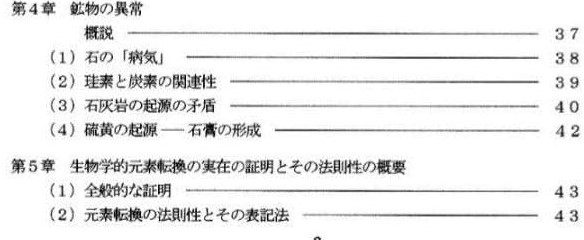 第4章 鉱物の異常
概説 ――― 37
(1) 石の「病気」 ――― 38
(2) 珪素と炭素の関連性 ――― 39
(3) 石灰岩の起源の矛盾 ――― 40
(4) 硫黄の起源 ― 石膏の形成 ――― 42
第5章 生物学的元素転換の実在の証明とその法則性の概要
(1) 全般的な証明 ――― 43
(2) 元素転換の法則性とその表記法 ――― 43